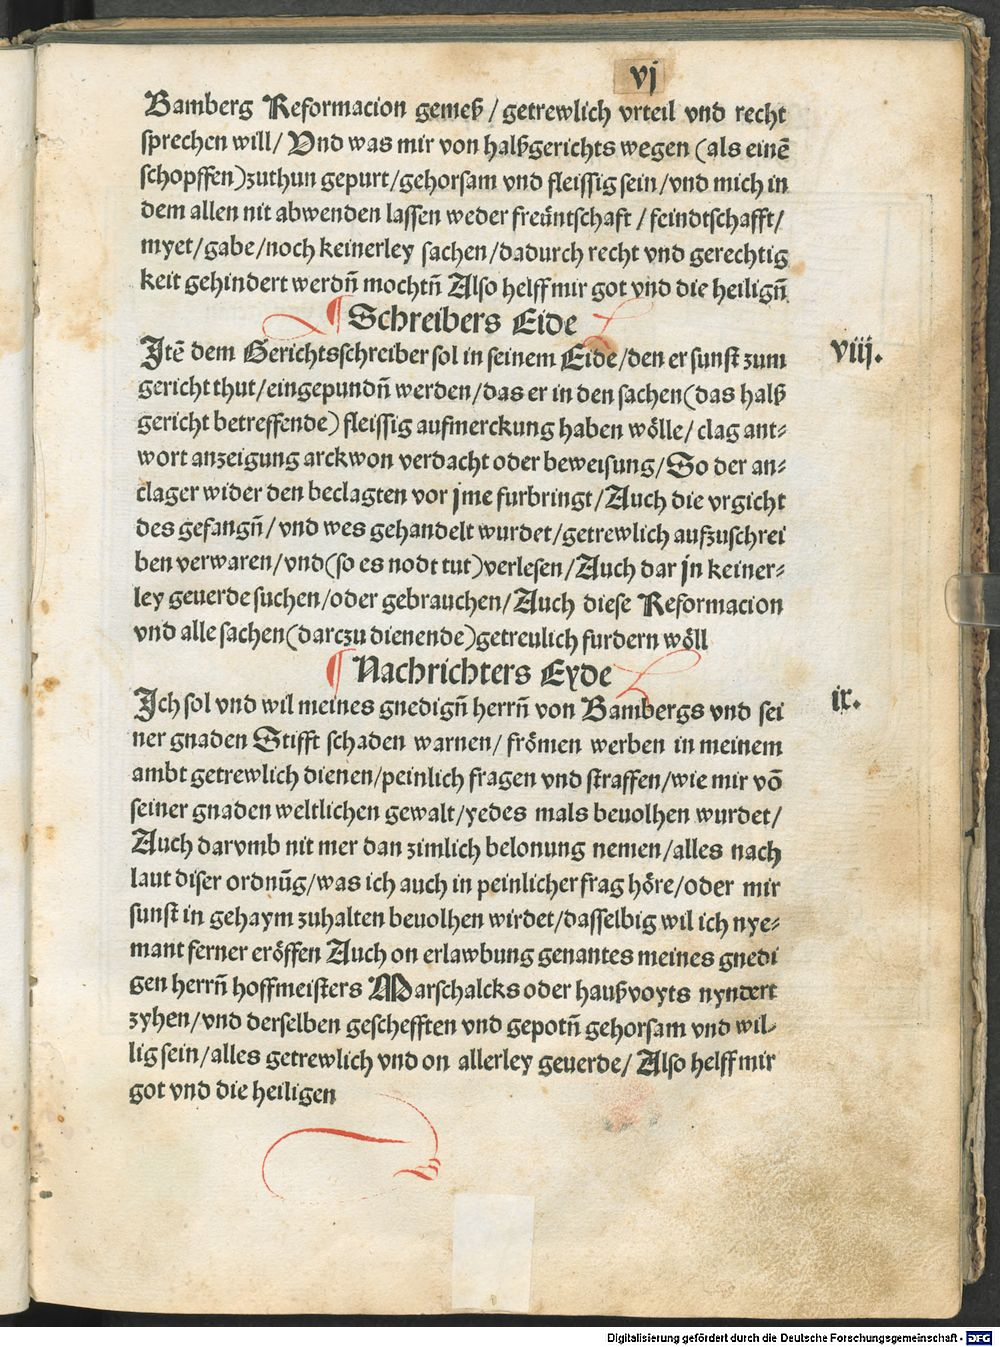 vj
Bamberg Reformacion gemeß / getrewlich vrteil vnd recht
sprechen will / Vnd was mir von halßgerichts wegen (als einē
schopffen) zuthun gepurt / gehorsam vnd fleissig sein / vnd mich in
dem allen nit abwenden lassen weder freüntschaft / feindtschafft /
myet / gabe / noch keinerley sachen / dadurch recht vnd gerechtig
keit gehindert werdn̄ mochtn̄ Also helff mir got vnd die heilign̄
¶ Schreibers Eide
Itē dem Gerichtsschreiber sol in seinem Eide / den er sunst zum
viij.
gericht thut / eingepundn̄ werden / das er in den sachen (das halß
gericht betreffende) fleissig aufmerckung haben wölle / clag ant⸗
wort anzeigung arckwon verdacht oder beweisung / So der an⸗
clager wider den beclagten vor jme furbringt / Auch die vrgicht
des gefangn̄ / vnd wes gehandelt wurdet / getrewlich aufzuschrei
ben verwaren / vnd (so es nodt tut) verlesen / Auch dar jn keiner⸗
ley geuerde suchen / oder gebrauchen / Auch diese Reformacion
vnd alle sachen (darczu dienende) getreulich furdern wöll
¶ Nachrichters Eyde
Ich sol vnd wil meines gnedign̄ herrn̄ von Bambergs vnd sei
ix.
ner gnaden Stifft schaden warnen / frömen werben in meinem
ambt getrewlich dienen / peinlich fragen vnd straffen / wie mir vō
seiner gnaden weltlichen gewalt / yedes mals beuolhen wurdet /
Auch darvmb nit mer dan zimlich belonung nemen / alles nach
laut diser ordnūg / was ich auch in peinlicher frag höre / oder mir
sunst in gehaym zuhalten beuolhen wirdet / dasselbig wil ich nye⸗
mant ferner eröffen Auch on erlawbung genantes meines gnedi
gen herrn̄ hoffmeisters Marschalcks oder haußvoyts nyndert
zyhen / vnd derselben geschefften vnd gepotn̄ gehorsam vnd wil⸗
lig sein / alles getrewlich vnd on allerley geuerde / Also helff mir
got vnd die heiligen
Digitalisierung gefördert durch die Deutsche Forschungsgemeinschaft - DFG